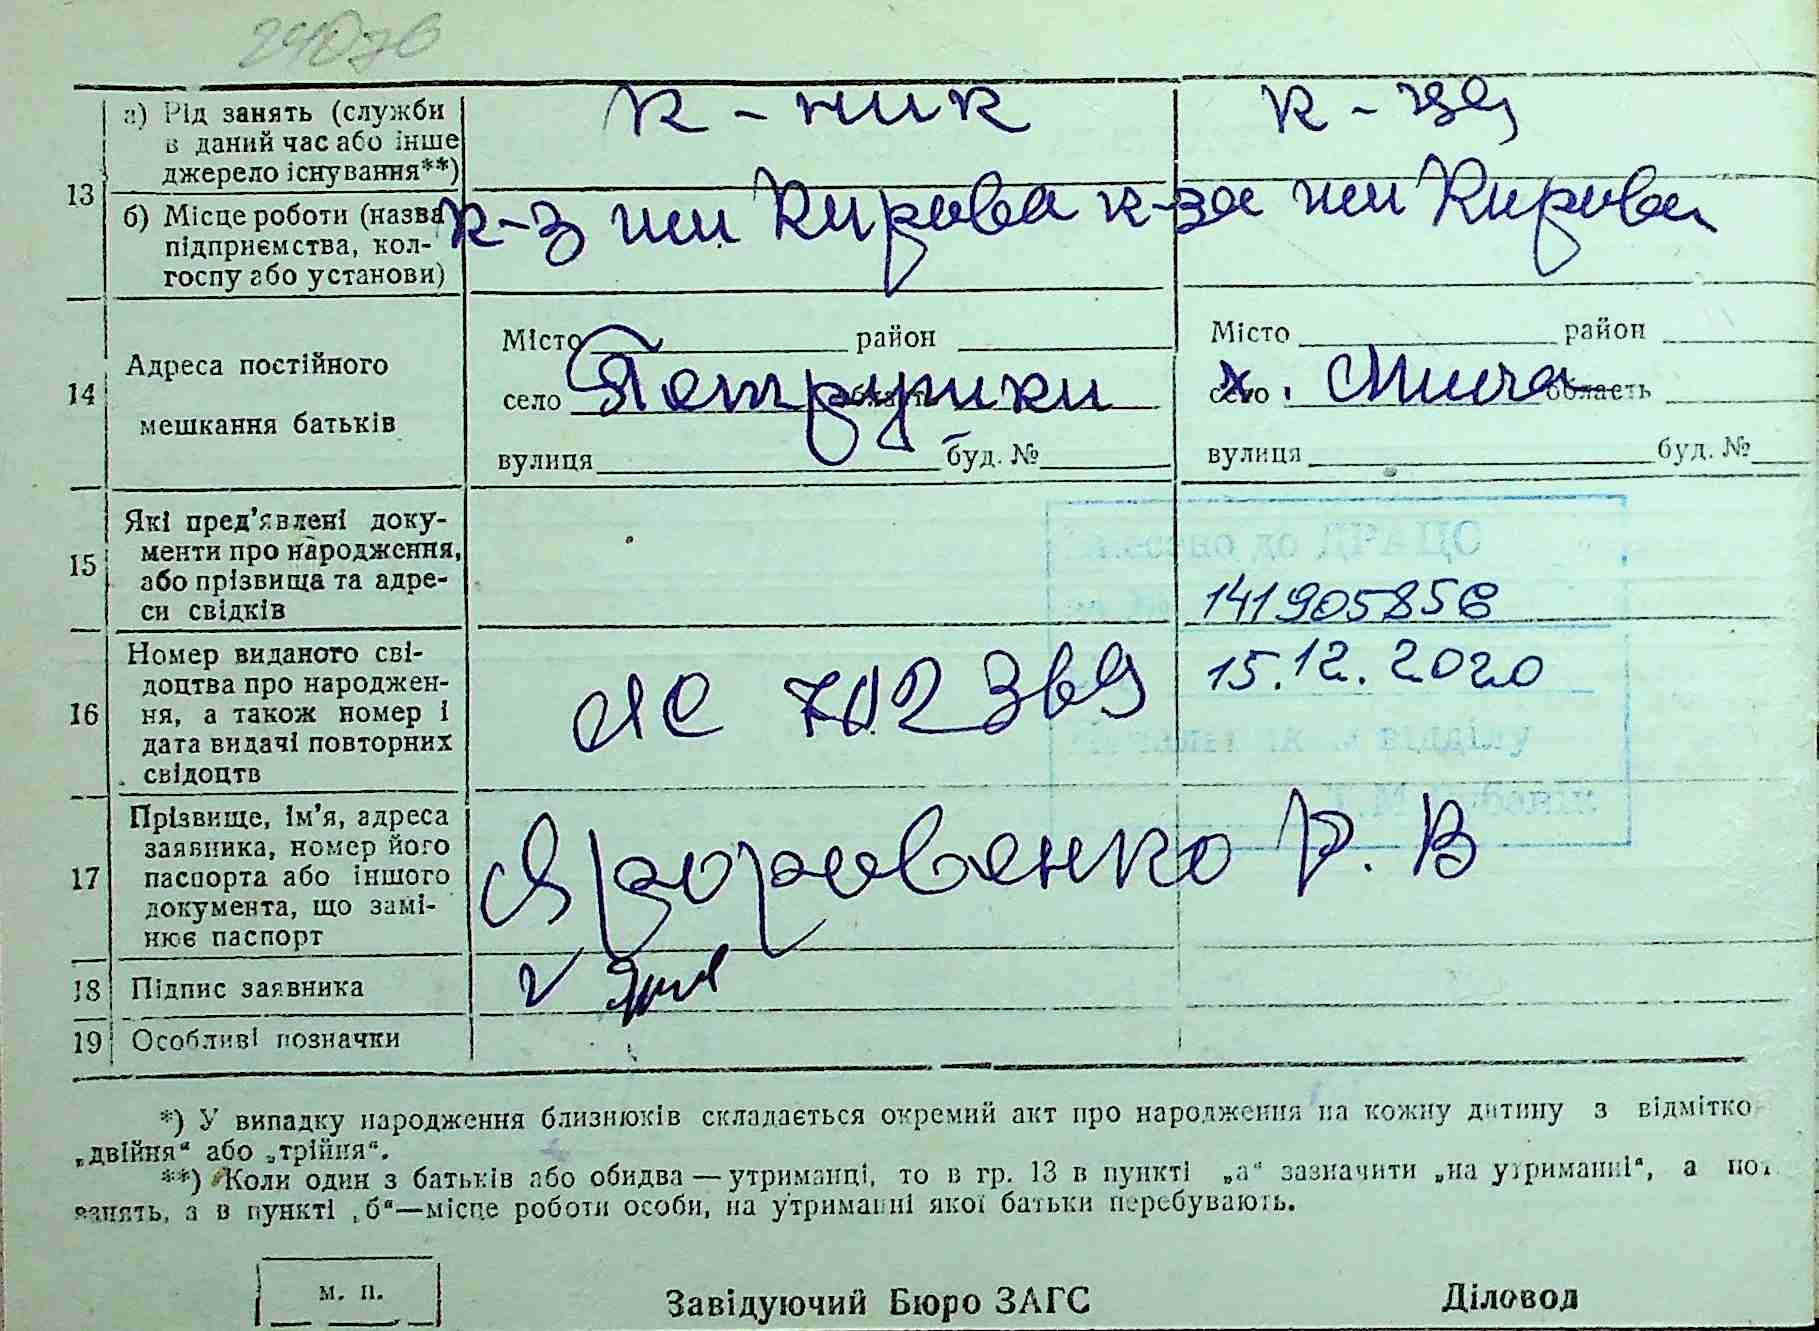 24076
13
а) Рід занять (служби
в даний час або інше
джерело існування**)
к - ник
к - ця
б) Місце роботи (назва
підприємства, кол-
госпу або установи)
к-з им Кирова
к-за им Кирова
14
Адреса постійного
мешкання батьків
Місто район
село Петрушки область
вулиця буд. №
Місто район
х. село область
вулиця буд. №
15
Які пред'явлені доку-
менти про народження,
або прізвища та адре-
си свідків
Внесено до ДРАЦС
за №
14190585
16
Номер виданого сві-
доцтва про народжен-
ня, а також номер і
дата видачі повторних
свідоцтв
ЯС
15.12.2020
Начальник відділу
17
Прізвище, ім'я, адреса
заявника, номер його
паспорта або іншого
документа, що замі-
нює паспорт
Р. В
18
Підпис заявника
19
Особливі позначки
*) У випадку народження близнюків складається окремий акт про народження на кожну дитину з відмітко
„двійня“ або „трійня“.
**) Коли один з батьків або обидва — утриманці, то в гр. 13 в пункті „а“ зазначити „на утриманні“, а
занять, а в пункті „б“—місце роботи особи, на утриманні якої батьки перебувають.
м. п.
Завідуючий Бюро ЗАГС
Діловод